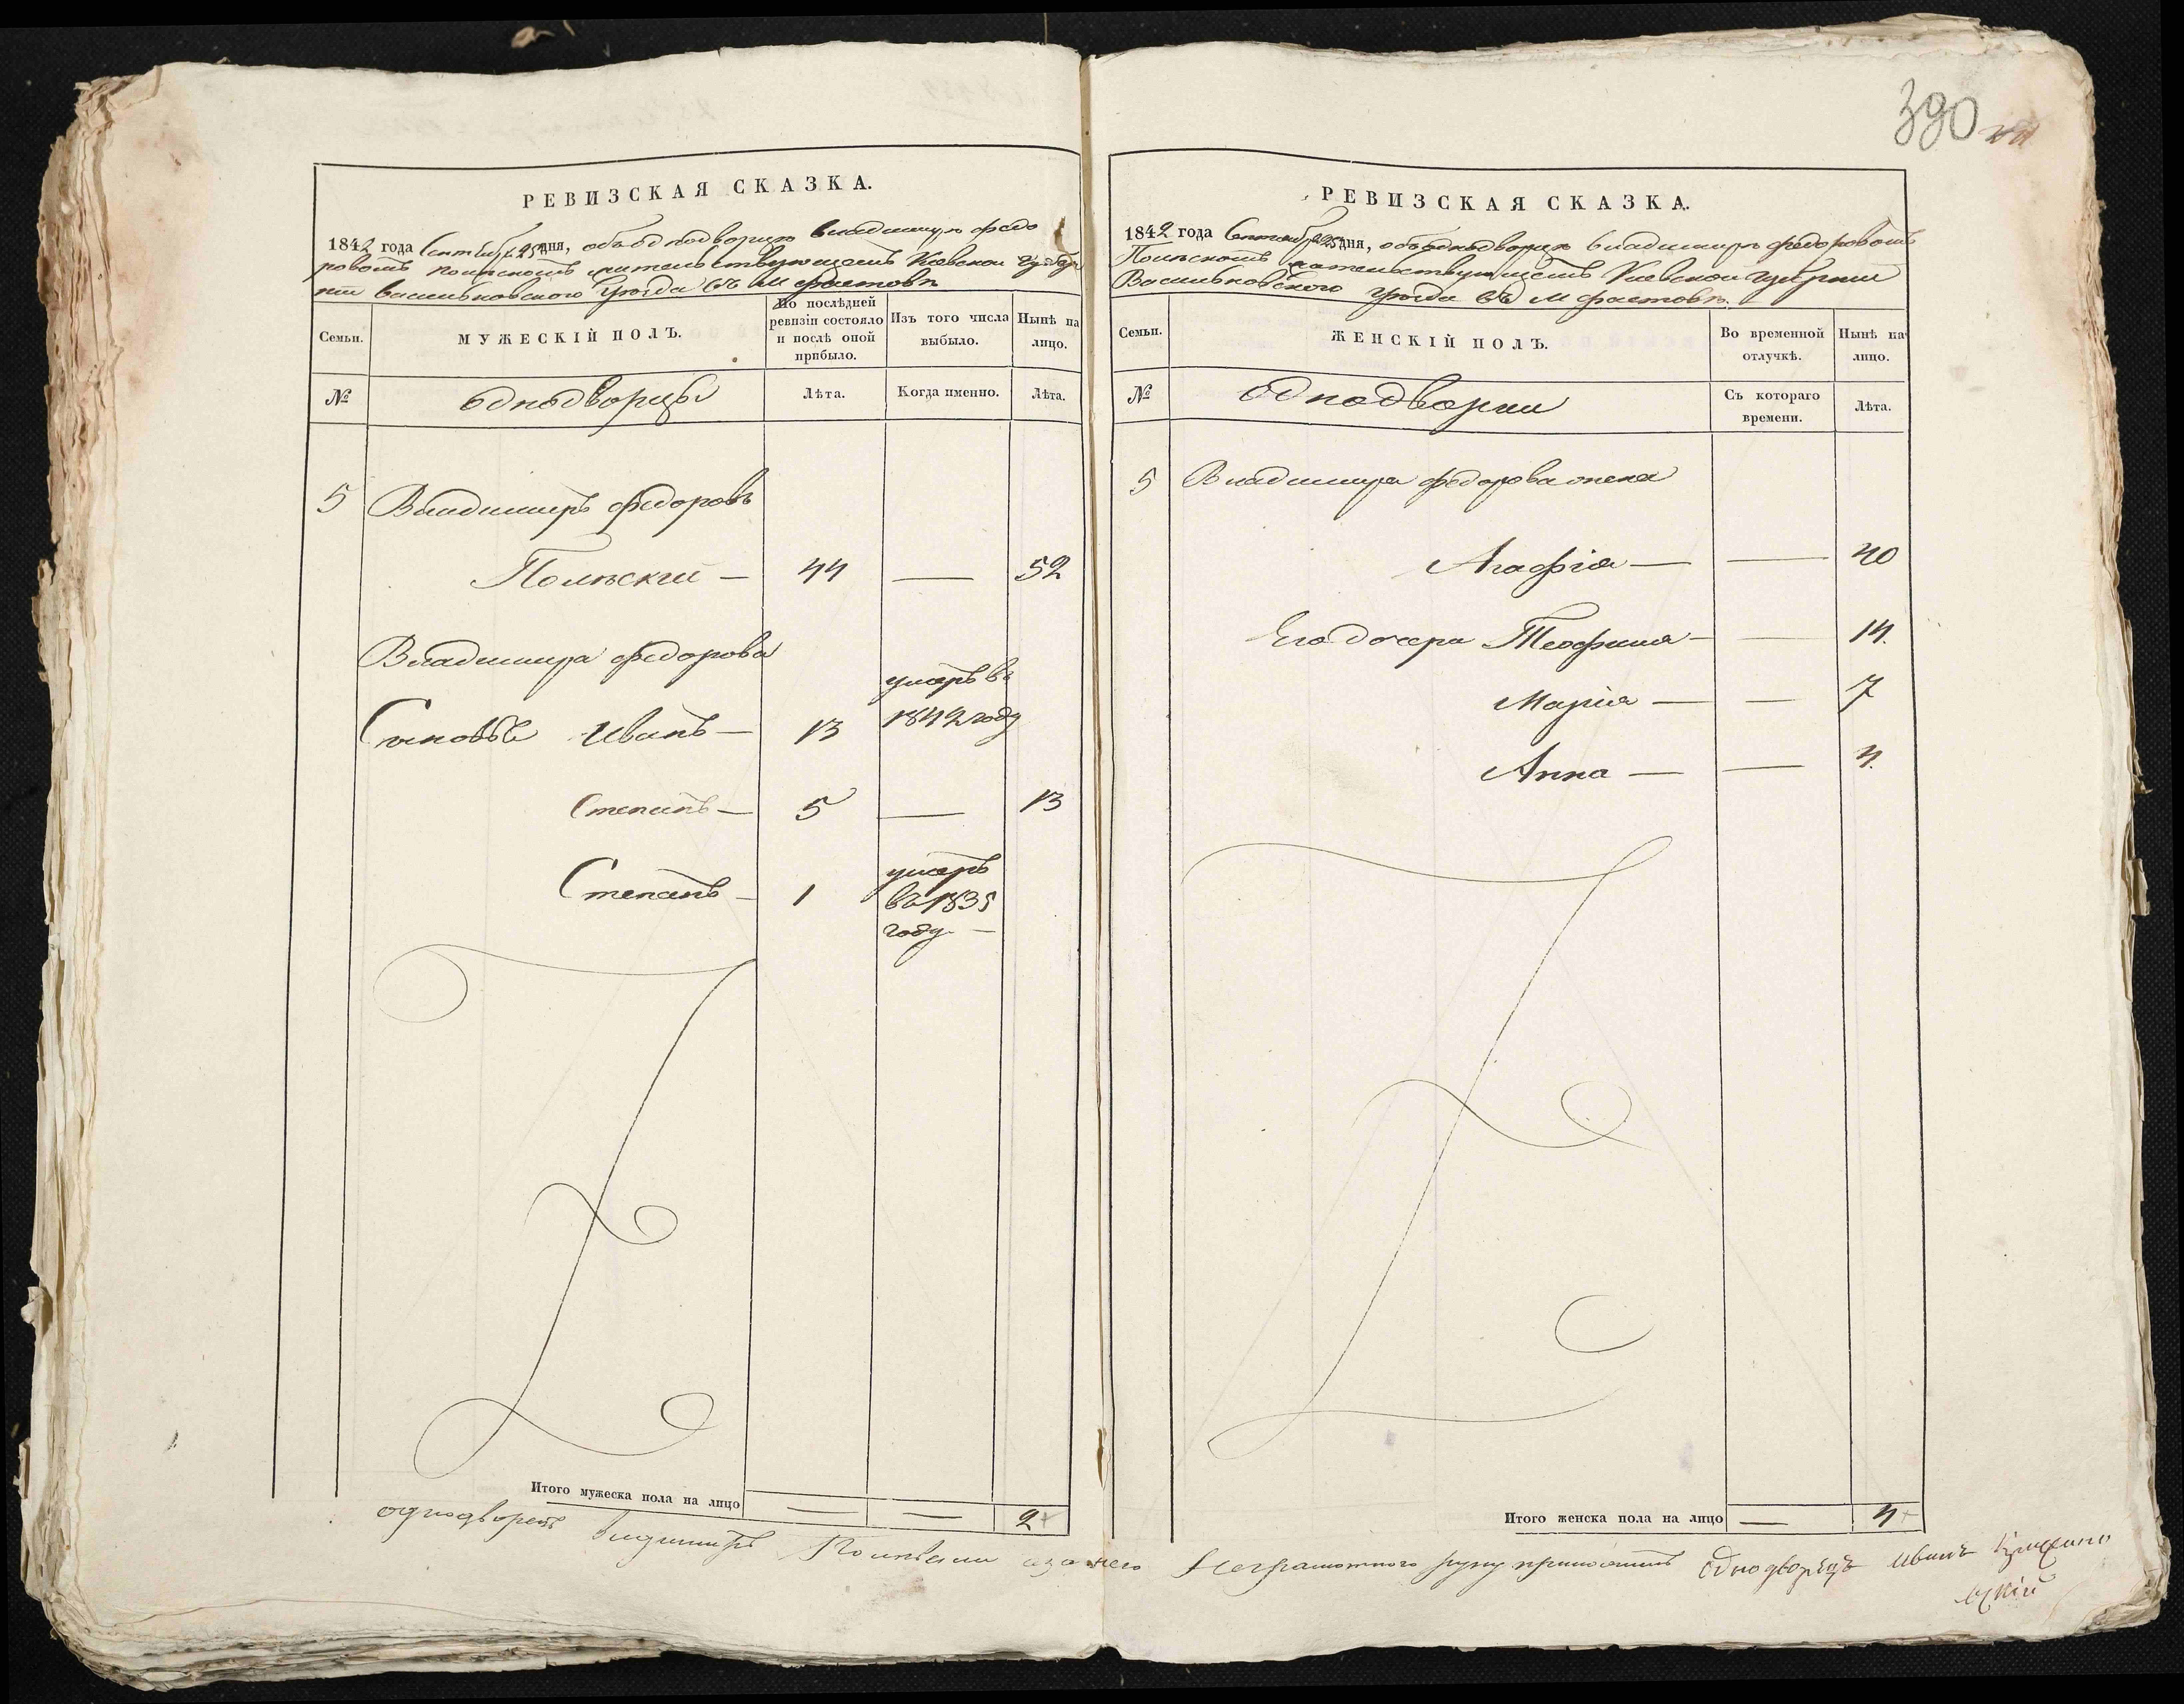 390
РЕВИЗСКАЯ СКАЗКА.
1842 года Сентября 25 дня, объ однодворцѣ Владимирѣ Федо
ровомъ Полѣскомъ жительствующемъ Кіевской Губер
ніи Васильковскаго уѣзда въ М Фастовѣ
Семьи.
МУЖЕСКІЙ ПОЛЪ.
По послѣдней ревизіи состояло и послѣ оной прибыло.
Изъ того числа выбыло.
Нынѣ на лицо.
№
однодворцы
Лѣта.
Когда именно.
Лѣта.
5 Владимиръ Федоровъ
Полѣский — 44 — 52
Владимира Федорова
умеръ въ
Сыновья Иванъ — 13 1842 году
Степанъ — 5 — 13
умеръ
Степанъ — 1 въ 1835
году —
Итого мужеска пола на лицо — — 2
РЕВИЗСКАЯ СКАЗКА.
1842 года Сентября 25 дня, объ однодворцѣ Владимирѣ Федоровомъ
Полѣскомъ жительствующемъ Кіевской Губерніи
Васильковского уѣзда въ М Фастовѣ.
Семьи.
ЖЕНСКІЙ ПОЛЪ.
Во временной отлучкѣ.
Нынѣ на лицо.
№
Однодворки
Съ котораго времени.
Лѣта.
5 Владимира Федорова жена
Агафія — — 40
Его дочери Теофила — — 14.
Марія — — 7
Анна — — 4.
Итого женска пола на лицо — 4
однодворецъ Владимиръ Полѣский а за него Неграмотного руку приложилъ Однодворецъ Иванъ